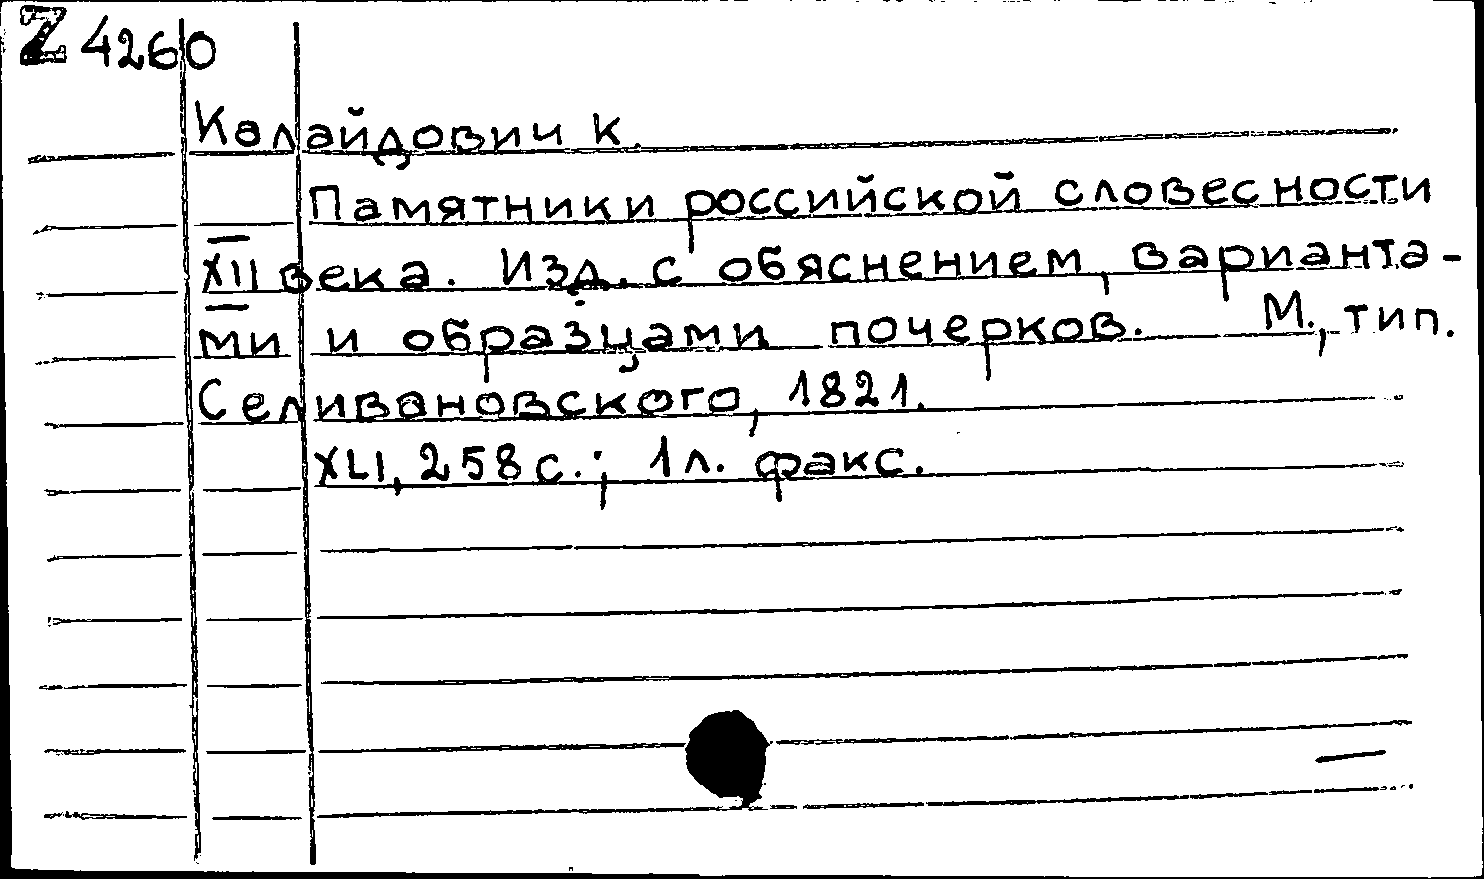 Z 4260
Калайдович К.
Памятники российской словесности
XII века. Изд. с обяснением, варианта-
ми и образцами почерков. М., тип.
Селивановского, 1821.
XLI, 258 с.; 1 л. факс.